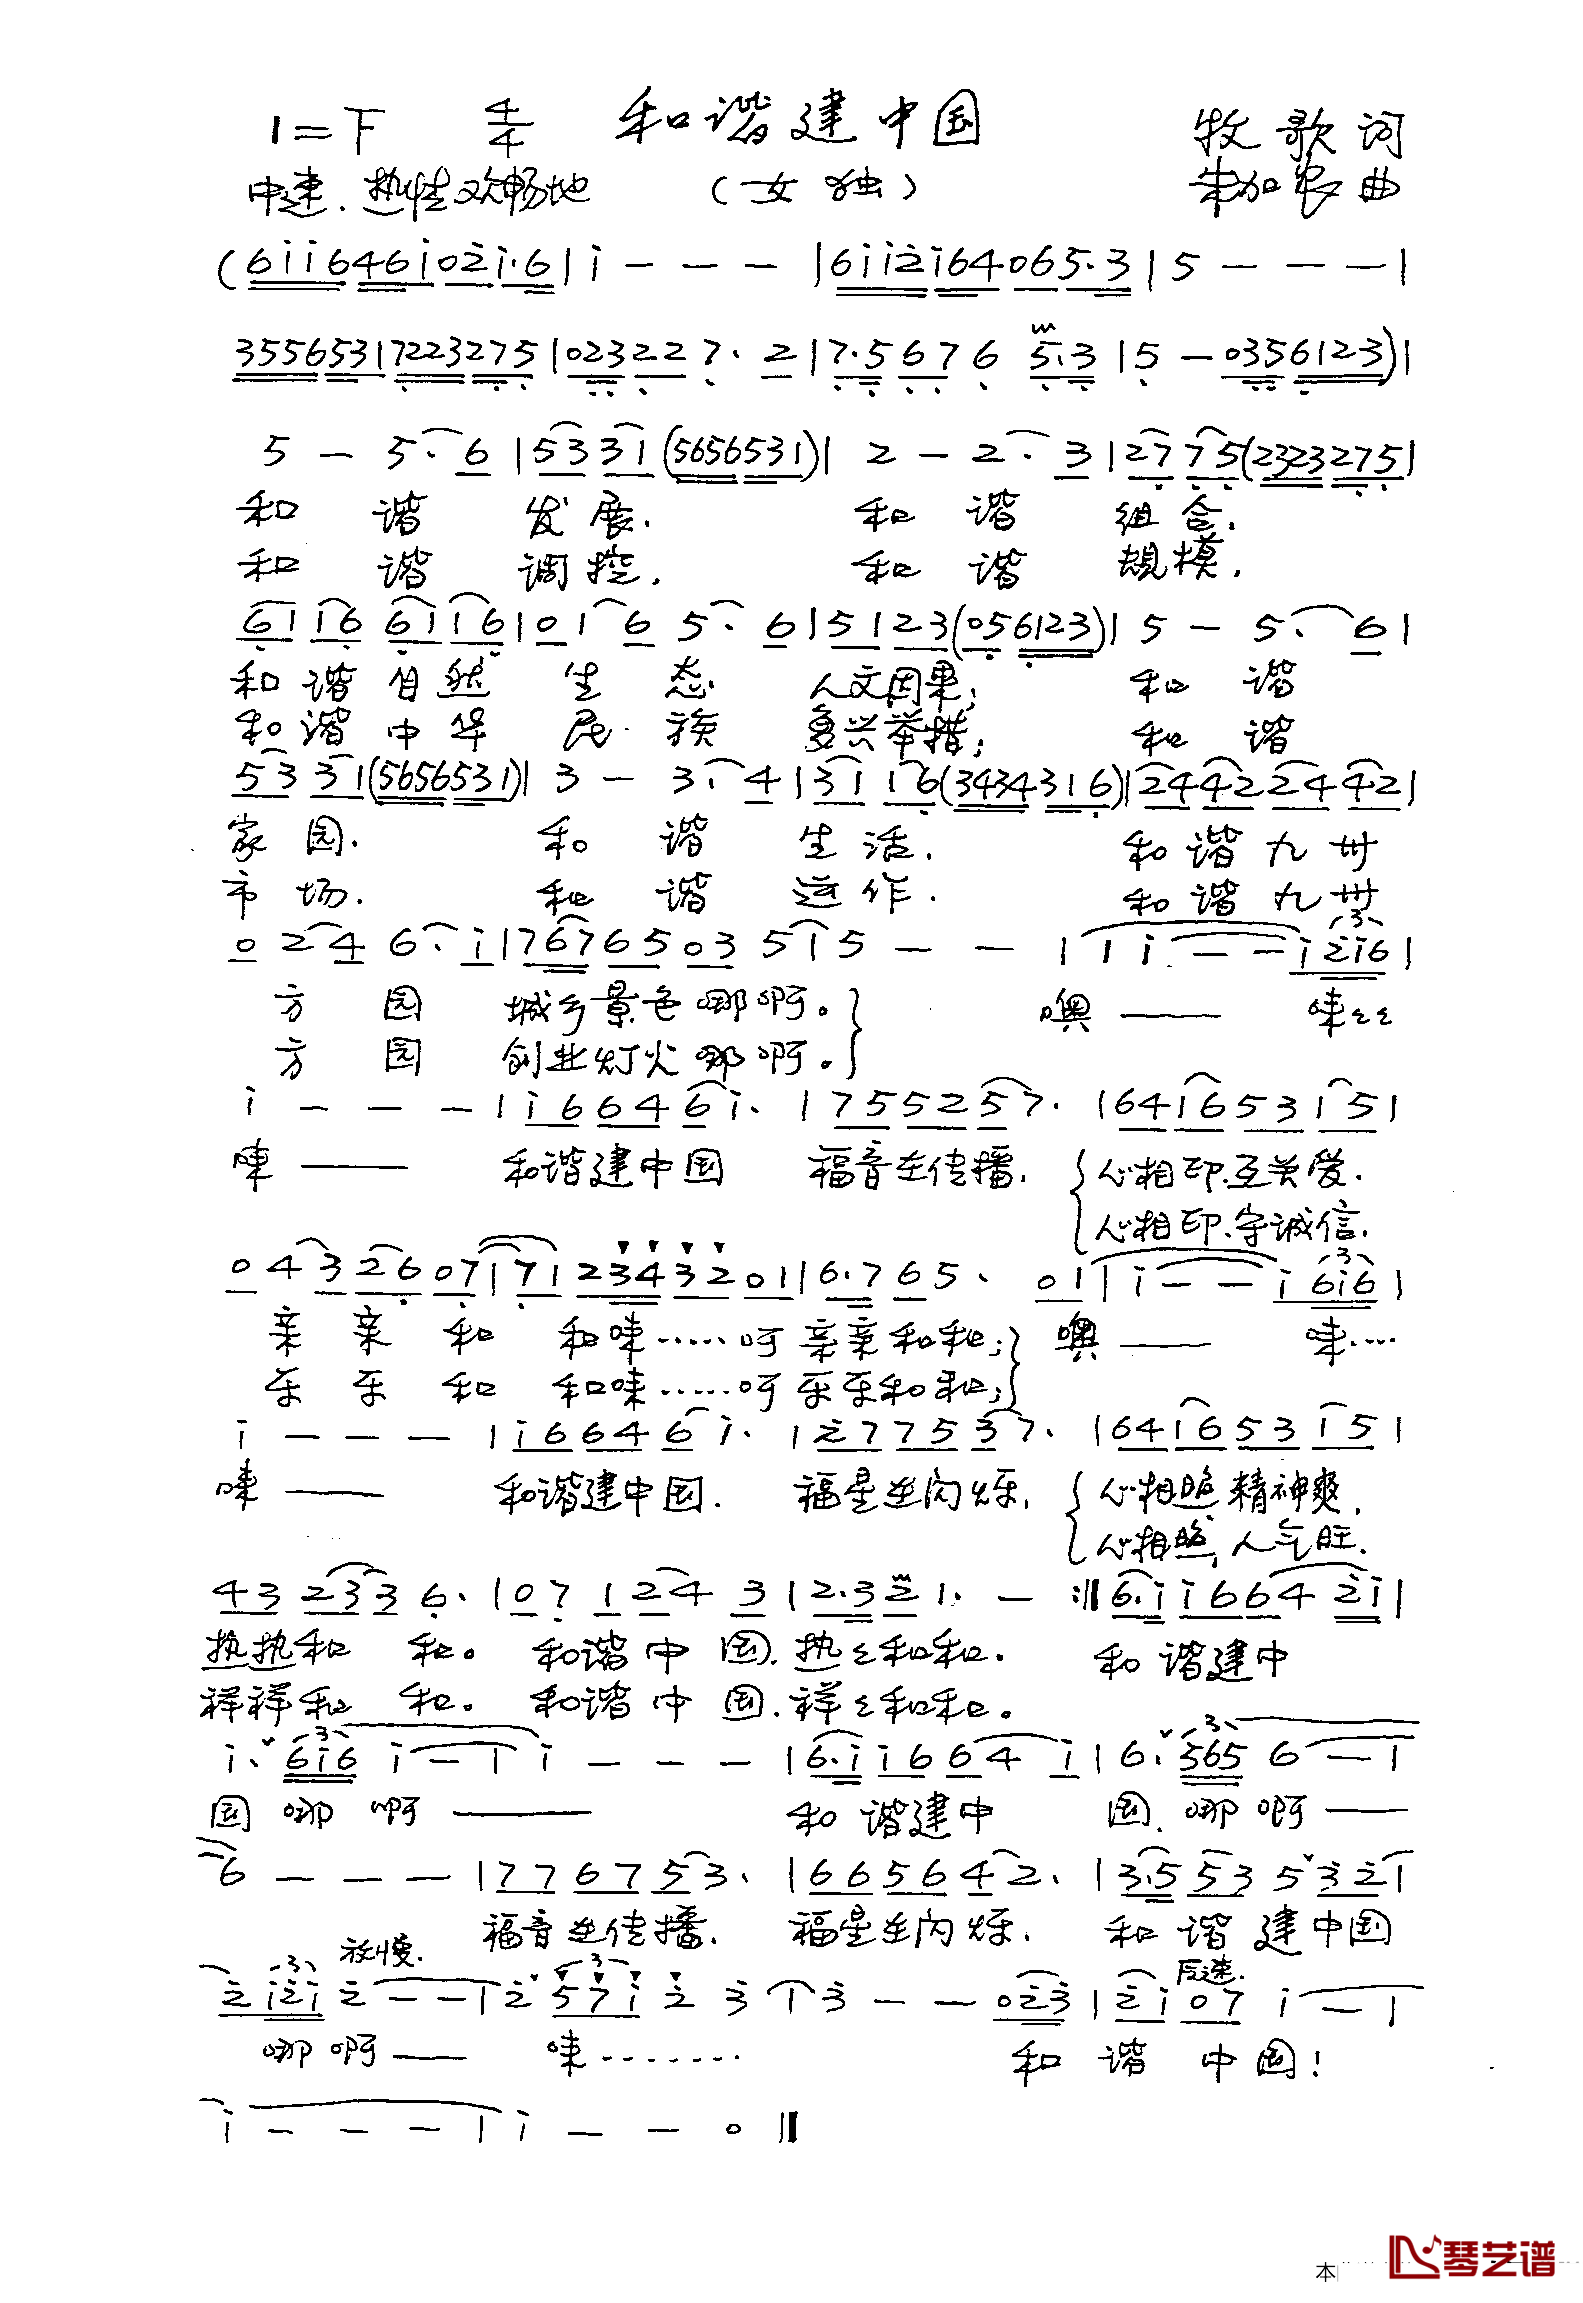 1=F 4/4 和谐建中国 牧歌词
中速.热情欢畅地 (女独) 朱加农曲
(6i i6 46 i 02 i·6 | i - - - | 6i i2 i64 06 5·3 | 5 - - - |
3556 531 7223 275 | 023 22 7· 2 | 7·5 67 6 5·3 | 5 - 0356123) |
5 - 5· 6 | 53 31 (5656531) | 2 - 2· 3 | 27 75 (2323275) |
和 谐 发 展. 和 谐 组 合.
和 谐 调 控. 和 谐 规 模.
61 16 61 16 | 01 6 5· 6 | 51 23 (056123) | 5 - 5· 6 |
和 谐 自 然 生 态 人文因果; 和 谐
和 谐 中 华 民 族 复兴举措; 和 谐
53 31 (5656531) | 3 - 3· 4 | 31 16 (3434316) | 24 42 24 42 |
家 园. 和 谐 生 活. 和 谐 九 州
市 场. 和 谐 运 作. 和 谐 九 州
0 2 4 6· i | 767 65 03 5 | 5 - - 1 | i - - i 2i6 |
方 园 城乡景色哪啊。 噢 —— 唻
方 园 创业灯火哪啊。
i - - - | i6 64 6 i· | 75 52 5 7· | 64 i6 53 15 |
唻 —— 和谐建中国 福音在传播. 心相印.互关爱.
心相印.守诚信.
0 4 3 26 07 | 71 2343 2 01 | 6·7 65· 01 | i - - i 6i6 |
亲 亲 和 和唻……呵亲亲和和; 噢 —— 唻…
乐 乐 和 和唻……呵乐乐和和;
i - - - | i6 64 6 i· | 27 75 3 7· | 64 i6 53 i5 |
唻 —— 和谐建中国. 福星在闪烁. 心相照精神爽.
心相照,人气旺.
43 23 3 6· | 07 1 24 3 | 2·3 2 1· - :‖ 6·i i6 64 2i |
热热和 和。 和谐中 国.热和和. 和 谐建中
祥祥和 和。 和谐中 国.祥和和。
i· 6i6 i - | i - - - | 6·i i6 64 i | 6· 365 6 - |
国 哪 啊 —— 和 谐建中 国.哪 啊 ——
6 - - - | 77 67 5 3· | 66 56 4 2· | 3·5 53 5 3 2 |
福音在传播. 福星在闪烁. 和 谐 建中国
放慢.
2 i2i 2 - - | 2 57i 2 3 | 3 - - 023 | 2i 07 i - |
哪 啊 —— 唻……… 和 谐 中 国!
i - - - | i - - 0 ‖
本
琴艺谱